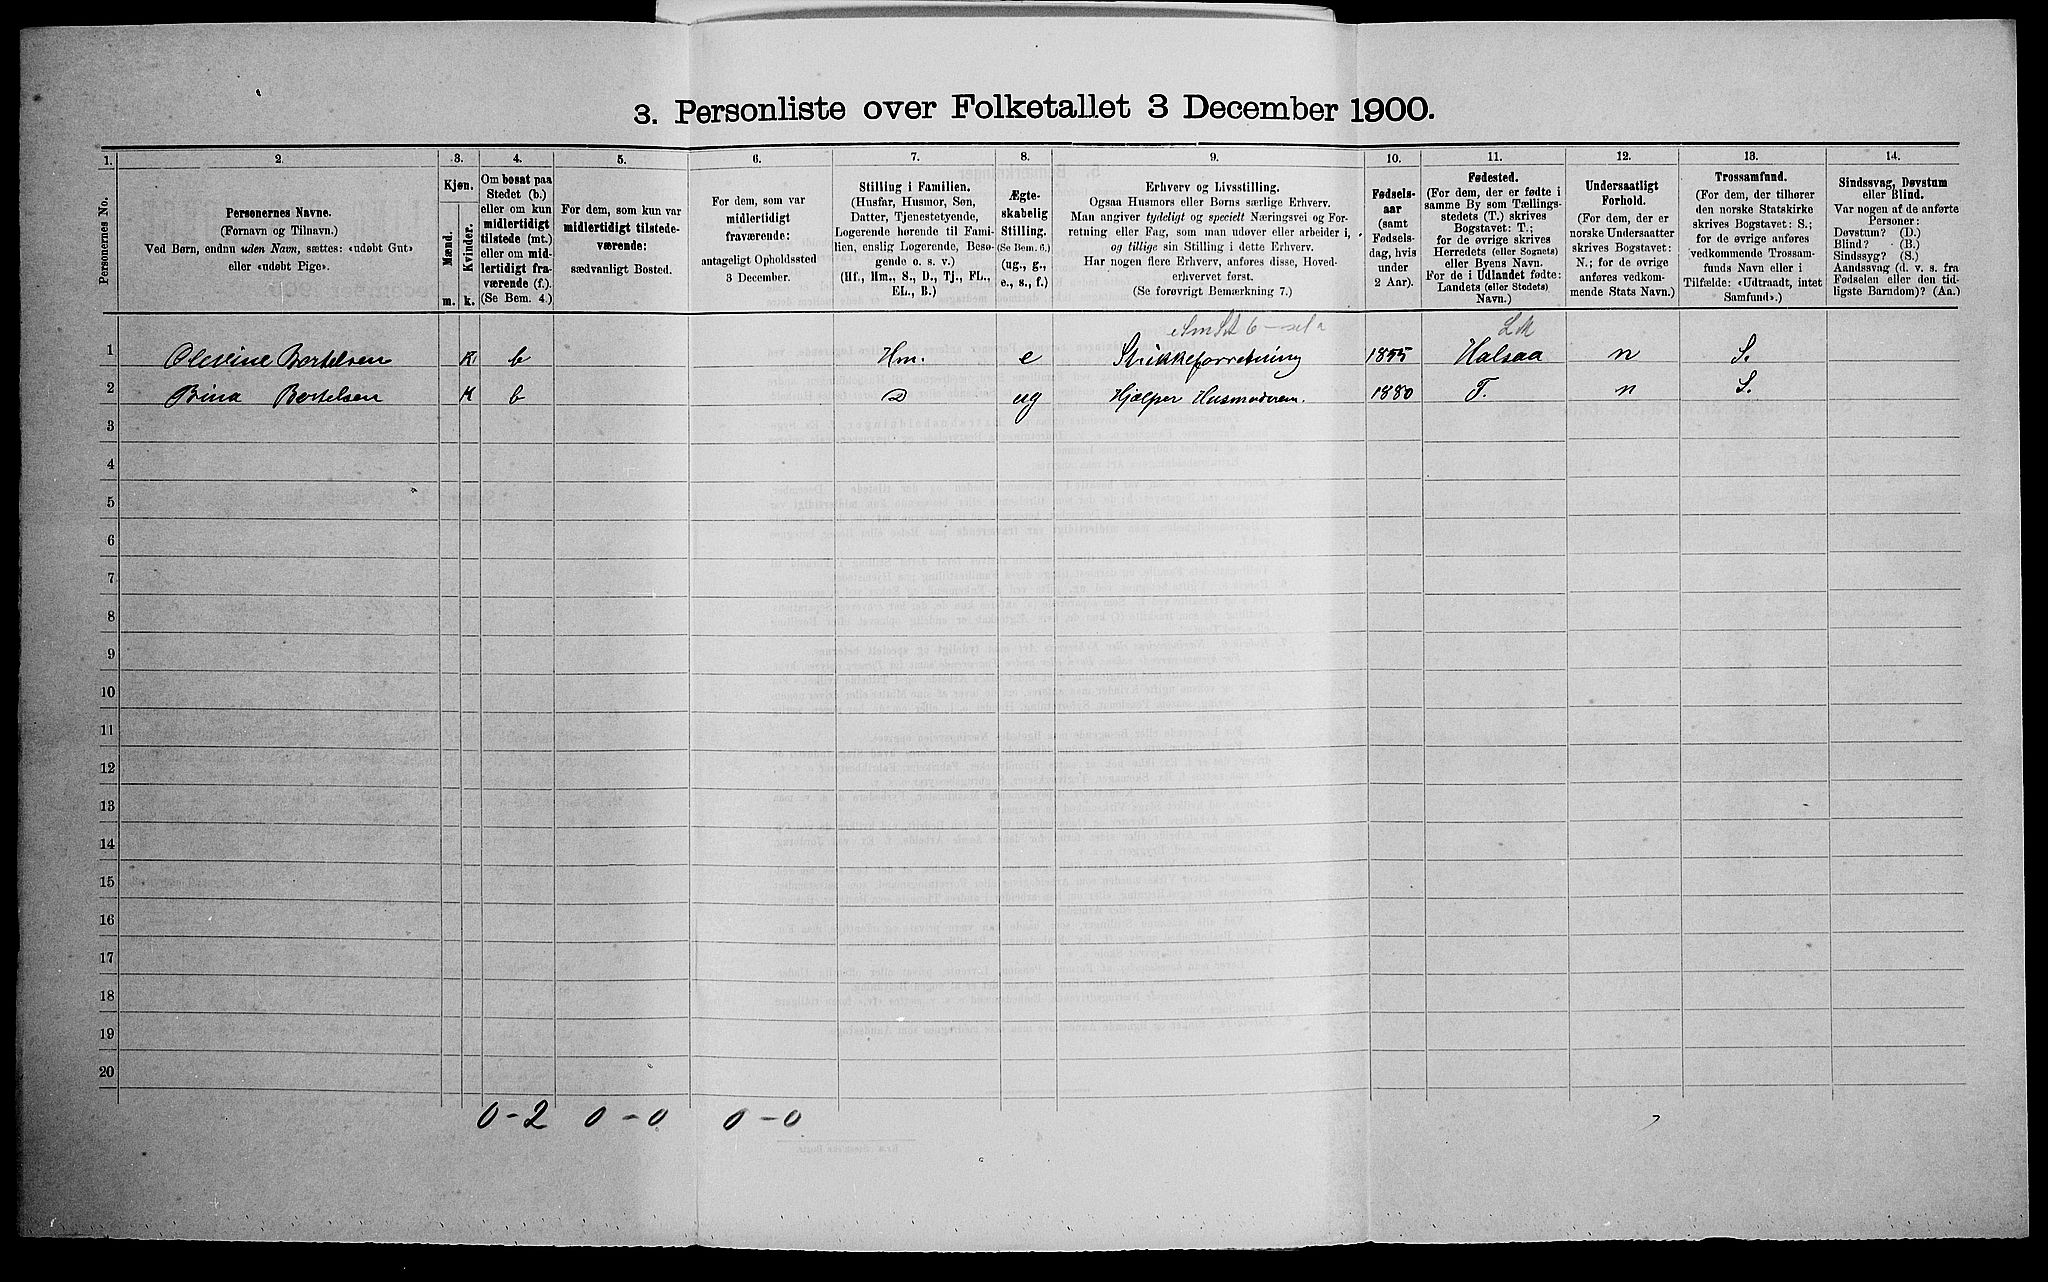 3. Personliste over Folketallet 3 December 1900.
1. 2. 3. 4. 5. 6. 7. 8. 9. 10. 11. 12. 13. 14.
Personernes No.
Personernes Navne.
(Fornavn og Tilnavn.)
Ved Børn, endnu uden Navn, sættes: «udøbt Gut»
eller «udøbt Pige».
Kjøn.
Mænd.
Kvinder.
m. k.
Om bosat paa
Stedet (b.)
eller om kun
midlertidigt
tilstede (mt.)
eller om mid-
lertidigt fra-
værende (f.).
(Se Bem. 4.)
For dem, som kun var
midlertidigt tilstede-
værende:
sædvanligt Bosted.
For dem, som var
midlertidigt
fraværende:
antageligt Opholdssted
3 December.
Stilling i Familien.
(Husfar, Husmor, Søn,
Datter, Tjenestetyende,
Logerende hørende til Fami-
lien, enslig Logerende, Besø-
gende o. s. v.)
(Hf., Hm., S., D., Tj., FL.,
EL., B.)
Ægte-
skabelig
Stilling.
(Se Bem. 6.)
(ug., g.,
e., s., f.)
Erhverv og Livsstilling.
Ogsaa Husmors eller Børns særlige Erhverv.
Man angiver tydeligt og specielt Næringsvei og For-
retning eller Fag, som man udøver eller arbeider i,
og tillige sin Stilling i dette Erhverv.
Har nogen flere Erhverv, anføres disse, Hoved-
erhvervet først.
(Se forøvrigt Bemærkning 7.)
Fødsels-
aar
(samt
Fødsels-
dag, hvis
under
2 Aar).
Fødested.
(For dem, der er fødte i
samme By som Tællings-
stedets (T.) skrives
Bogstavet: T.;
for de øvrige skrives
Herredets (eller Sognets)
eller Byens Navn.
For de i Udlandet fødte:
Landets (eller Stedets)
Navn.)
Undersaatligt
Forhold.
(For dem, der er
norske Undersaatter
skrives Bogstavet:
N.; for de øvrige
anføres vedkom-
mende Stats Navn.)
Trossamfund.
(For dem, der tilhører
den norske Statskirke
skrives Bogstavet: S.;
for de øvrige anføres
vedkommende Trossam-
funds Navn eller i
Tilfælde: «Udtraadt, intet
Samfund».)
Sindssvag, Døvstum
eller Blind.
Var nogen af de anførte
Personer:
Døvstum? (D.)
Blind? (B.)
Sindssyg? (S.)
Aandssvag (d. v. s. fra
Fødselen eller den tid-
ligste Barndom)? (Aa.)
1 Olevine Bertelsen K b Hm. e Strikkeforretning 1855 Halsaa n S.
2 Bina Bertelsen K b D ug Hjælper Husmoderen. 1880 T. n S.
3
4
5
6
7
8
9
10
11
12
13
14
15
16
17
18
19
20
0-2 0-0 0-0